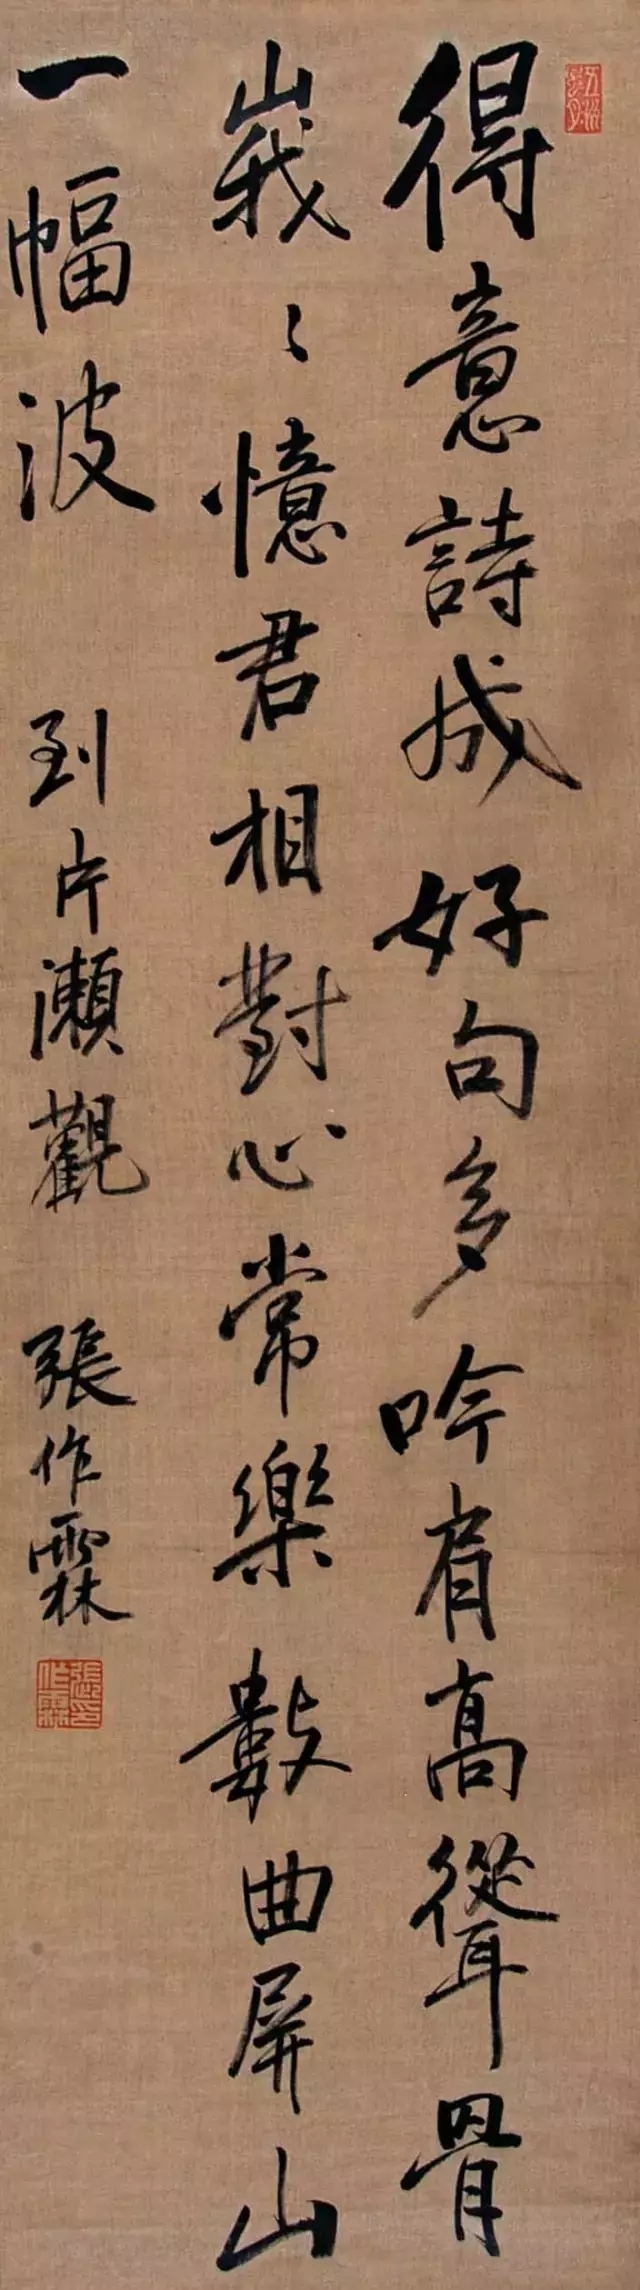 得意詩成好句多吟肩高聳骨
峩〻憶君相對心常樂數曲屏山
一幅波 到片瀨觀 張作霖
張作霖印